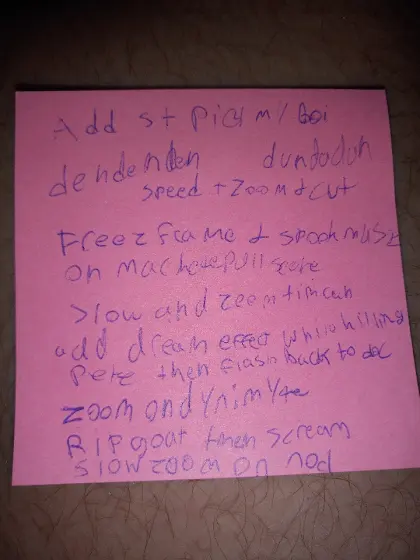 Add st
dendenden dundudun
speed + zoom & cut
Freezframe & spook music
on machete pull scare
slow and zoom
add dream effect while killing
Pete then flash back to doc
zoom on dynimyte
RIP goat then scream
slow zoom on nod